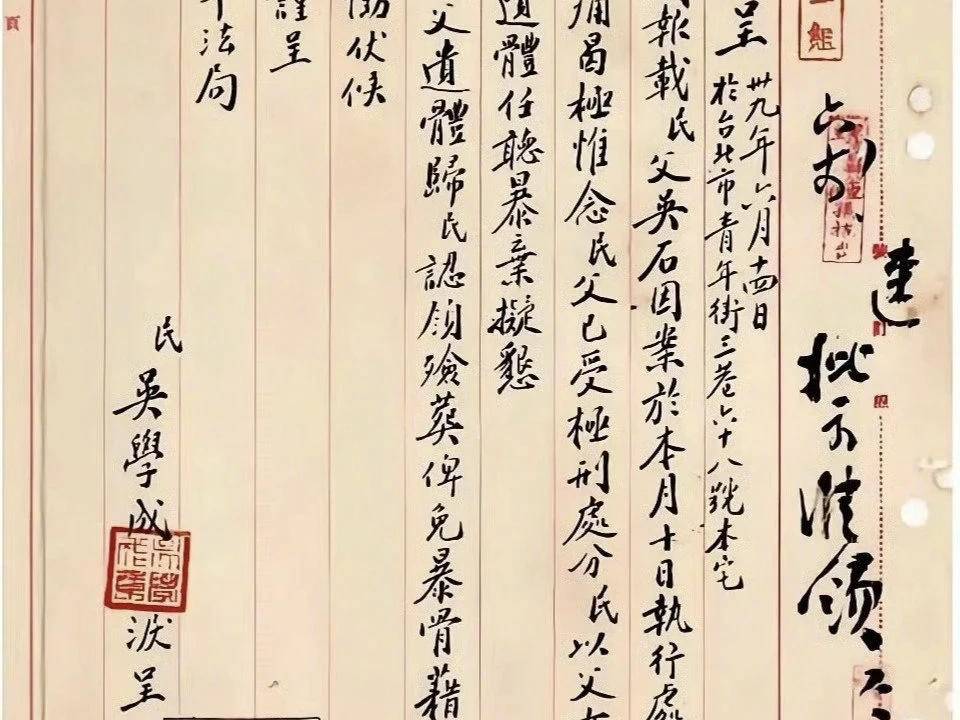 速
批示准領
呈 卅九年六月十四日
於台北市青年街三巷六十八號本宅
報載民父吳石因業於本月十日執行處
痛曷極惟念民父已受極刑處分民以父
遺體任聽暴棄擬懇
父遺體歸民認領殮葬俾免暴骨藉
伏候
謹呈
法局
民
吳學成
淚呈
頁
訂
照